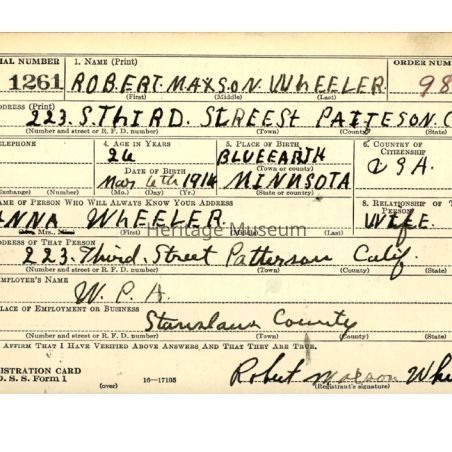 IAL NUMBER 1. NAME (Print) ORDER NUM
1261 ROBERT MAXSON WHEELER 98
(First) (Middle) (Last)
DDRESS (Print)
223. S. THIRD. STREEST PATTESON. C
(Number and street or R. F. D. number) (Town) (County) (State)
ELEPHONE 4. AGE IN YEARS 5. PLACE OF BIRTH 6. COUNTRY OF
CITIZENSHIP
26 BLUEEARTH
DATE OF BIRTH (Town or county) USA.
Mar 4th 1914 MINNSOTA
Exchange) (Number) (Mo.) (Day) (Yr.) (State or country)
AME OF PERSON WHO WILL ALWAYS KNOW YOUR ADDRESS 8. RELATIONSHIP OF T
PERSON
ANNA WHEELER WIFE
Heritage Museum
Mrs., (First) (Middle) (Last)
DDRESS OF THAT PERSON
223. Third. Street Patterson Calif.
(Number and street or R. F. D. number) (Town) (County) (State)
MPLOYER'S NAME
W. P. A.
LACE OF EMPLOYMENT OR BUSINESS
Stanslaus County
(Number and street or R. F. D. number) (Town) (County) (State)
AFFIRM THAT I HAVE VERIFIED ABOVE ANSWERS AND THAT THEY ARE TRUE.
EGISTRATION CARD
D. S. S. Form 1 (over) 16—17105 Robert Maxson Whe
(Registrant's signature)